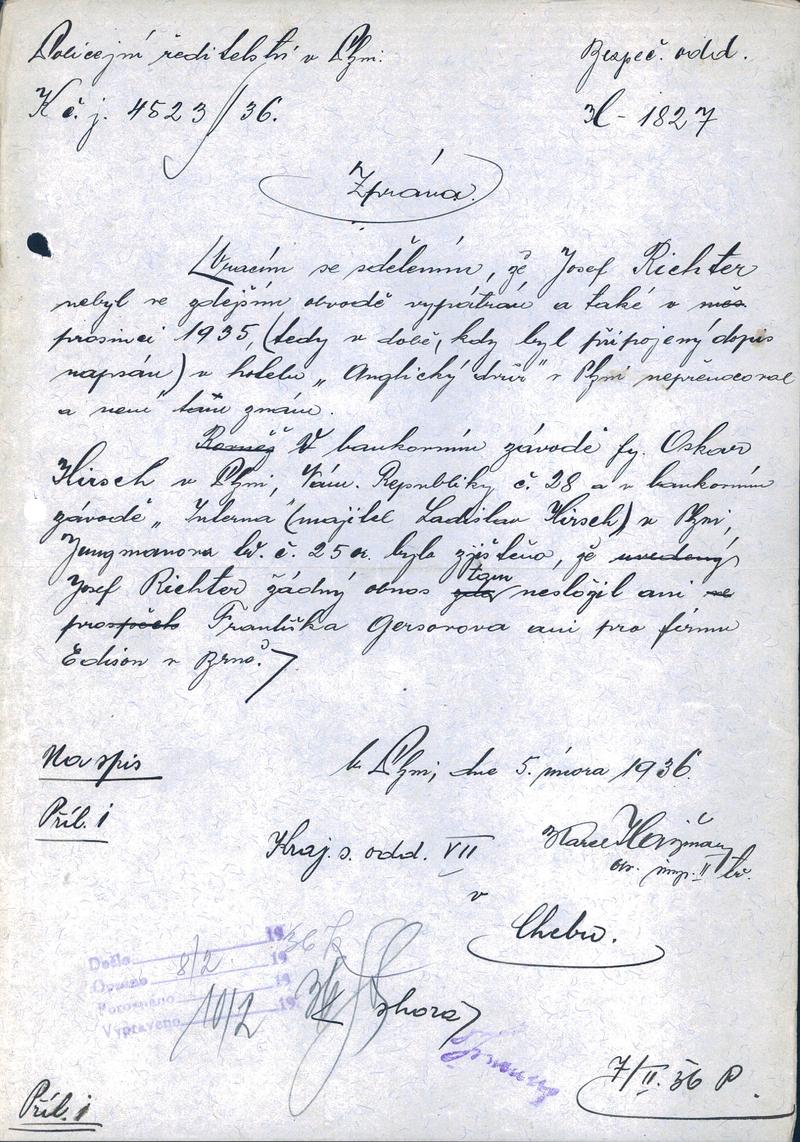 Policejní ředitelství v Plzni. Bezpeč. odd.
K č. j. 4523/36. H - 1827
Zpráva.
Vracím se sdělením, že Josef Richter
nebyl ve zdejším obvodě vypátrán a také v měs
prosinci 1935, (tedy v době, kdy byl připojený dopis
napsán) v hotelu „Anglický dvůr" v Plzni nepřenocoval
a není tam znám.
Rovněž V bankovním závodě fy. Oskar
Hirsch v Plzni, Nám. Republiky č. 28 a v bankovním
závodě „Interna" (majitel Ladislav Hirsch) v Plzni,
Jungmanova tř. č. 25 a. bylo zjištěno, že uvedený
tam
Josef Richter žádný obnos nesložil ani se
Františka Gersonova ani pro firmu
Edison v Brně.
Na spis
V Plzni, dne 5. února 1936.
Příl. 1
Kraj. s. odd. VII
Karel
insp. II tř.
v
Chebu.
Došlo 8/2 1936
19
Porovnáno 19
Vypraveno 10/2 19
shora
7/II. 36 P.
Příl. 1